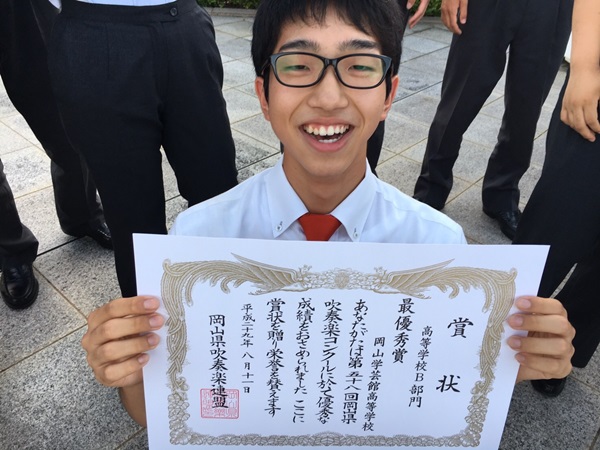 賞状
高等学校B部門
最優秀賞
岡山学芸館高等学校
あなたがたは第五十八回岡山県
吹奏楽コンクールに於て優秀な
成績をおさめられました ここに
賞状を贈り栄誉を讃えます
平成二十九年八月十一日
岡山県吹奏楽連盟